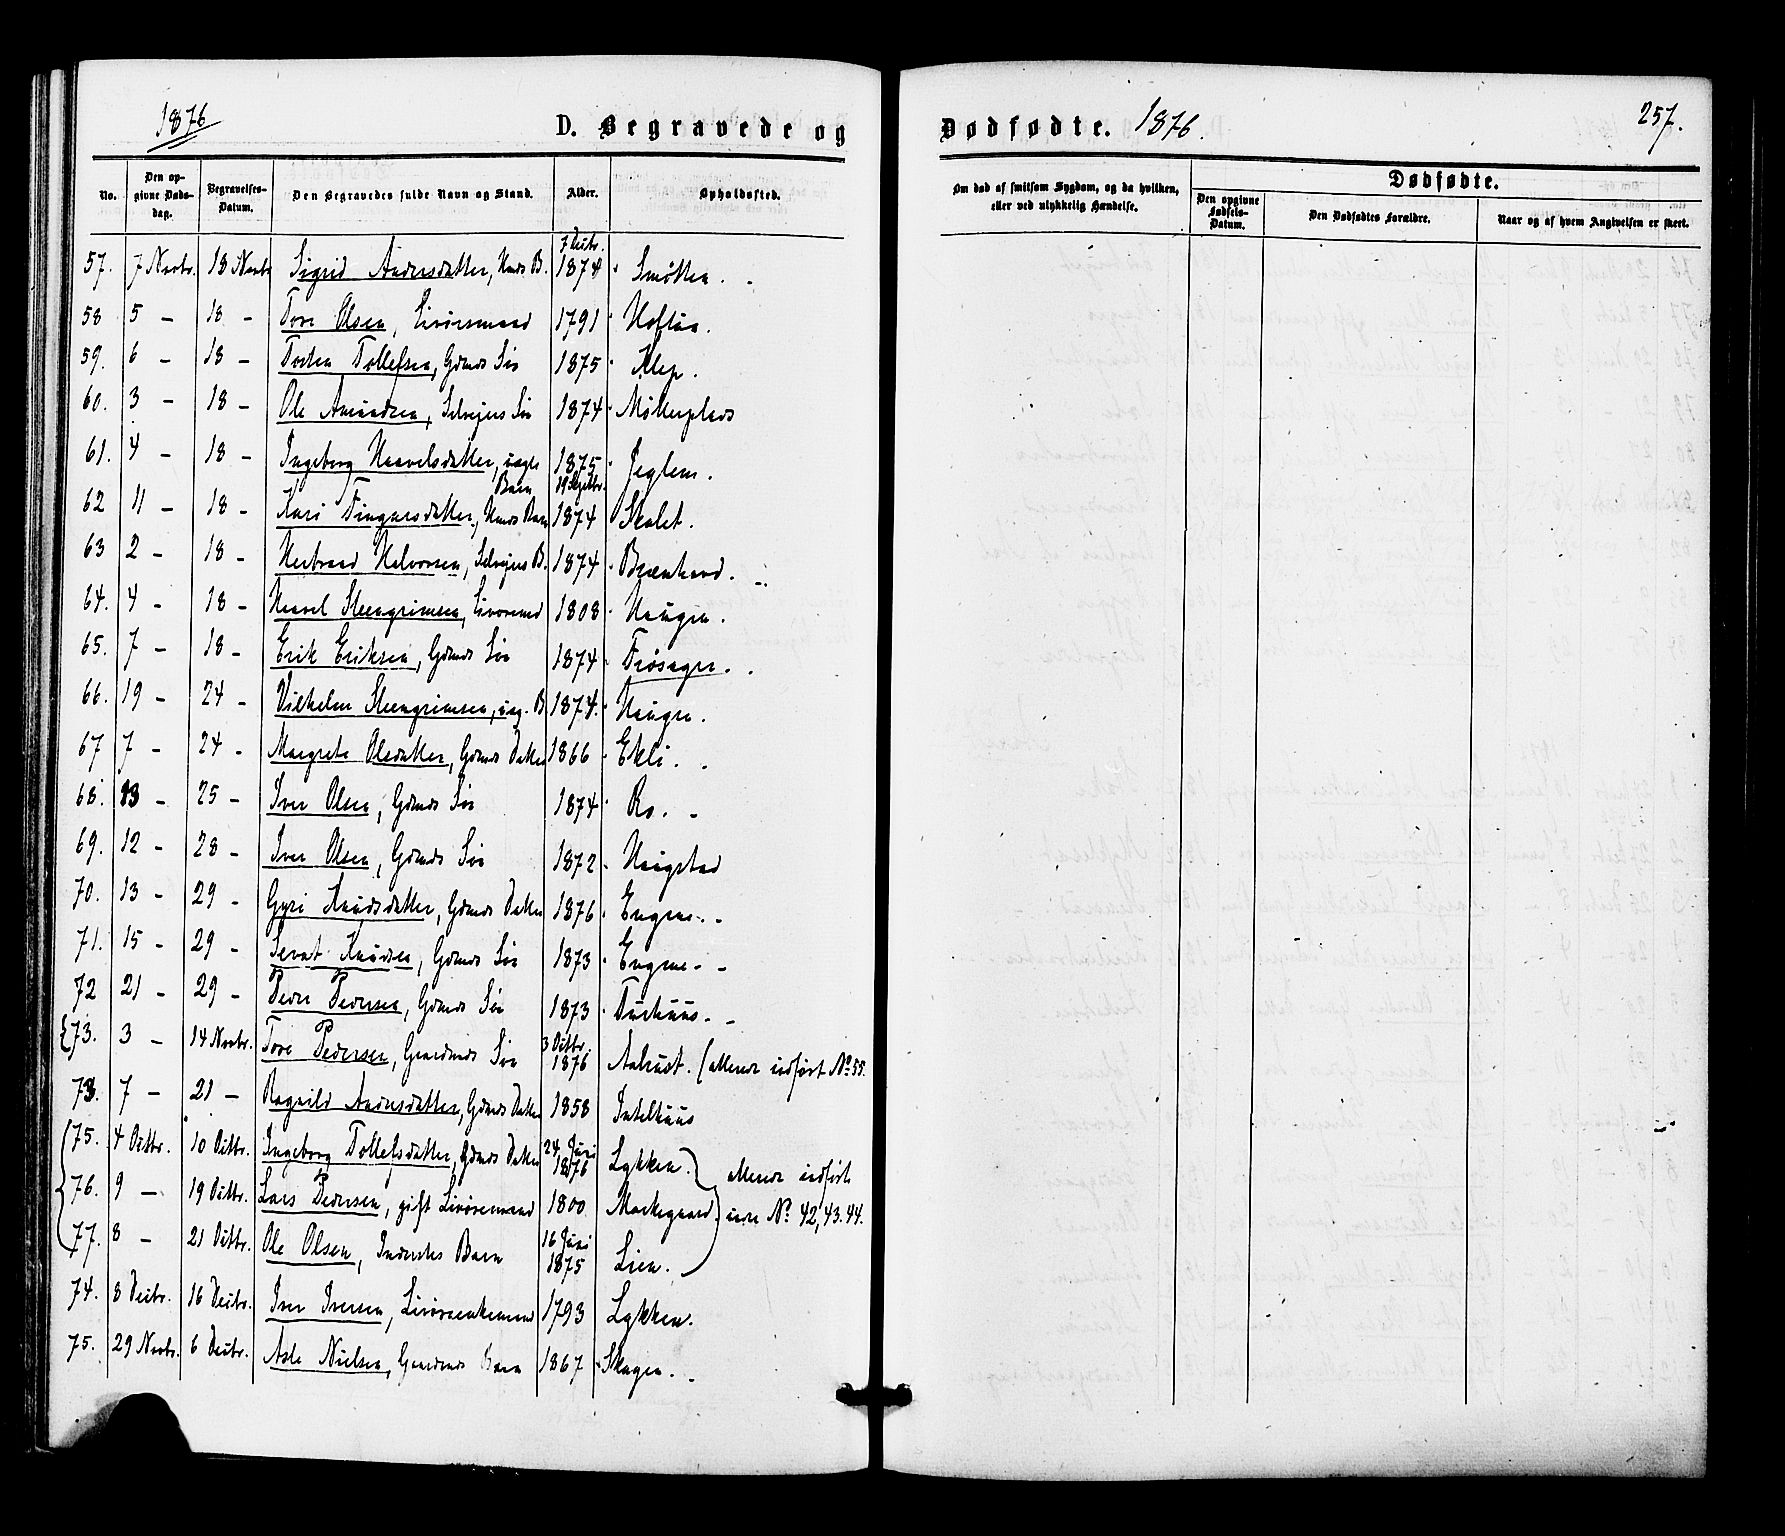 1876
D. Begravede og
Dødfødte. 1876.
257.
No. Den opgivne Dødsdag. Begravelses-Datum. Den Begravedes fulde Navn og Stand. Alder. Opholdssted.
Om død af smitsom Sygdom, og da hvilken, eller ved ulykkelig Hændelse.
Dødfødte.
Den opgivne Fødsels-Datum. Den Dødfødtes Forældre. Naar og af hvem Angivelsen er skeet.
7 Decbr.
57. 7 Novbr. 18 Novbr Sigrid Andersdatter, Hmds B. 1874 Smøtten.
58 5 - 18 - Tore Olsen, Livøremand 1791 Haftün.
59. 6 - 18 - Tosten Tollefsen, Gdmds Søn 1875 Klep.
60. 3 - 18 - Ole Amundsen, Selvejers Søn 1874 Møllerplads
61. 4 - 18 - Ingeborg Haavelsdatter, uægte 1875 Jeglem.
Barn 19 Septbr.
62 11 - 18 - Kari Fingarsdatter, Hmds Barn 1874 Skalet.
63 2 - 18 - Herbrand Halvorsen, Selvejers B. 1874 Brænhovd.
64. 4 - 18 - Haavel Steengrimsen, Livøremd 1808 Haugen.
65. 7 - 18 - Erik Eriksen, Gdmds Søn 1874 Frøsager.
66. 19 - 24 - Vilhelm Steengrimsen, uæg. B 1874. Haugen.
67 7 - 24 - Margrete Olsdatter, Gdmds Datter 1866 Ekli.
68. 13 - 25 - Iver Olsen, Gdmds Søn 1874 Ro.
69. 12 - 28 - Iver Olsen, Gdmds Søn 1872 Haugstad
70. 13 - 29 - Gyri Knudsdatter, Gdmds Datter 1876 Engene.
71. 15 - 29 - Sevat Knudsen, Gdmds Søn 1873 Engene.
72 21 - 29 - Peder Pedersen, Gdmds Søn 1873
73. 3 - 14 Novbr. Tore Pedersen, Gaardmds Søn 3 Octbr. 1876 Aakust. (allerede indført No 55.
73. 7 - 21 - Ragnild Andersdatter, Gdmds Datter 1858 Intelhuus
75. 4 Octbr. 10 Octbr. Ingeborg Tollefsdatter, Gdmds Datter 24 Juni 1876 Lykken.
allerede indført
76. 9 - 19 Octbr. Lars Pedersen, gift Livøremand 1800 Markegaard under No 42, 43. 44.
77. 8 - 21 Octbr. Ole Olsen, Inderstes Barn 16 Juni 1875 Lien.
74. 8 Decbr. 16 Decbr. Iver Iversen, Livøreenkemand 1793 Lykken.
75. 29 Novbr. 6 Decbr. Asle Nielsen, Gaardmds Barn 1867 Skagen.